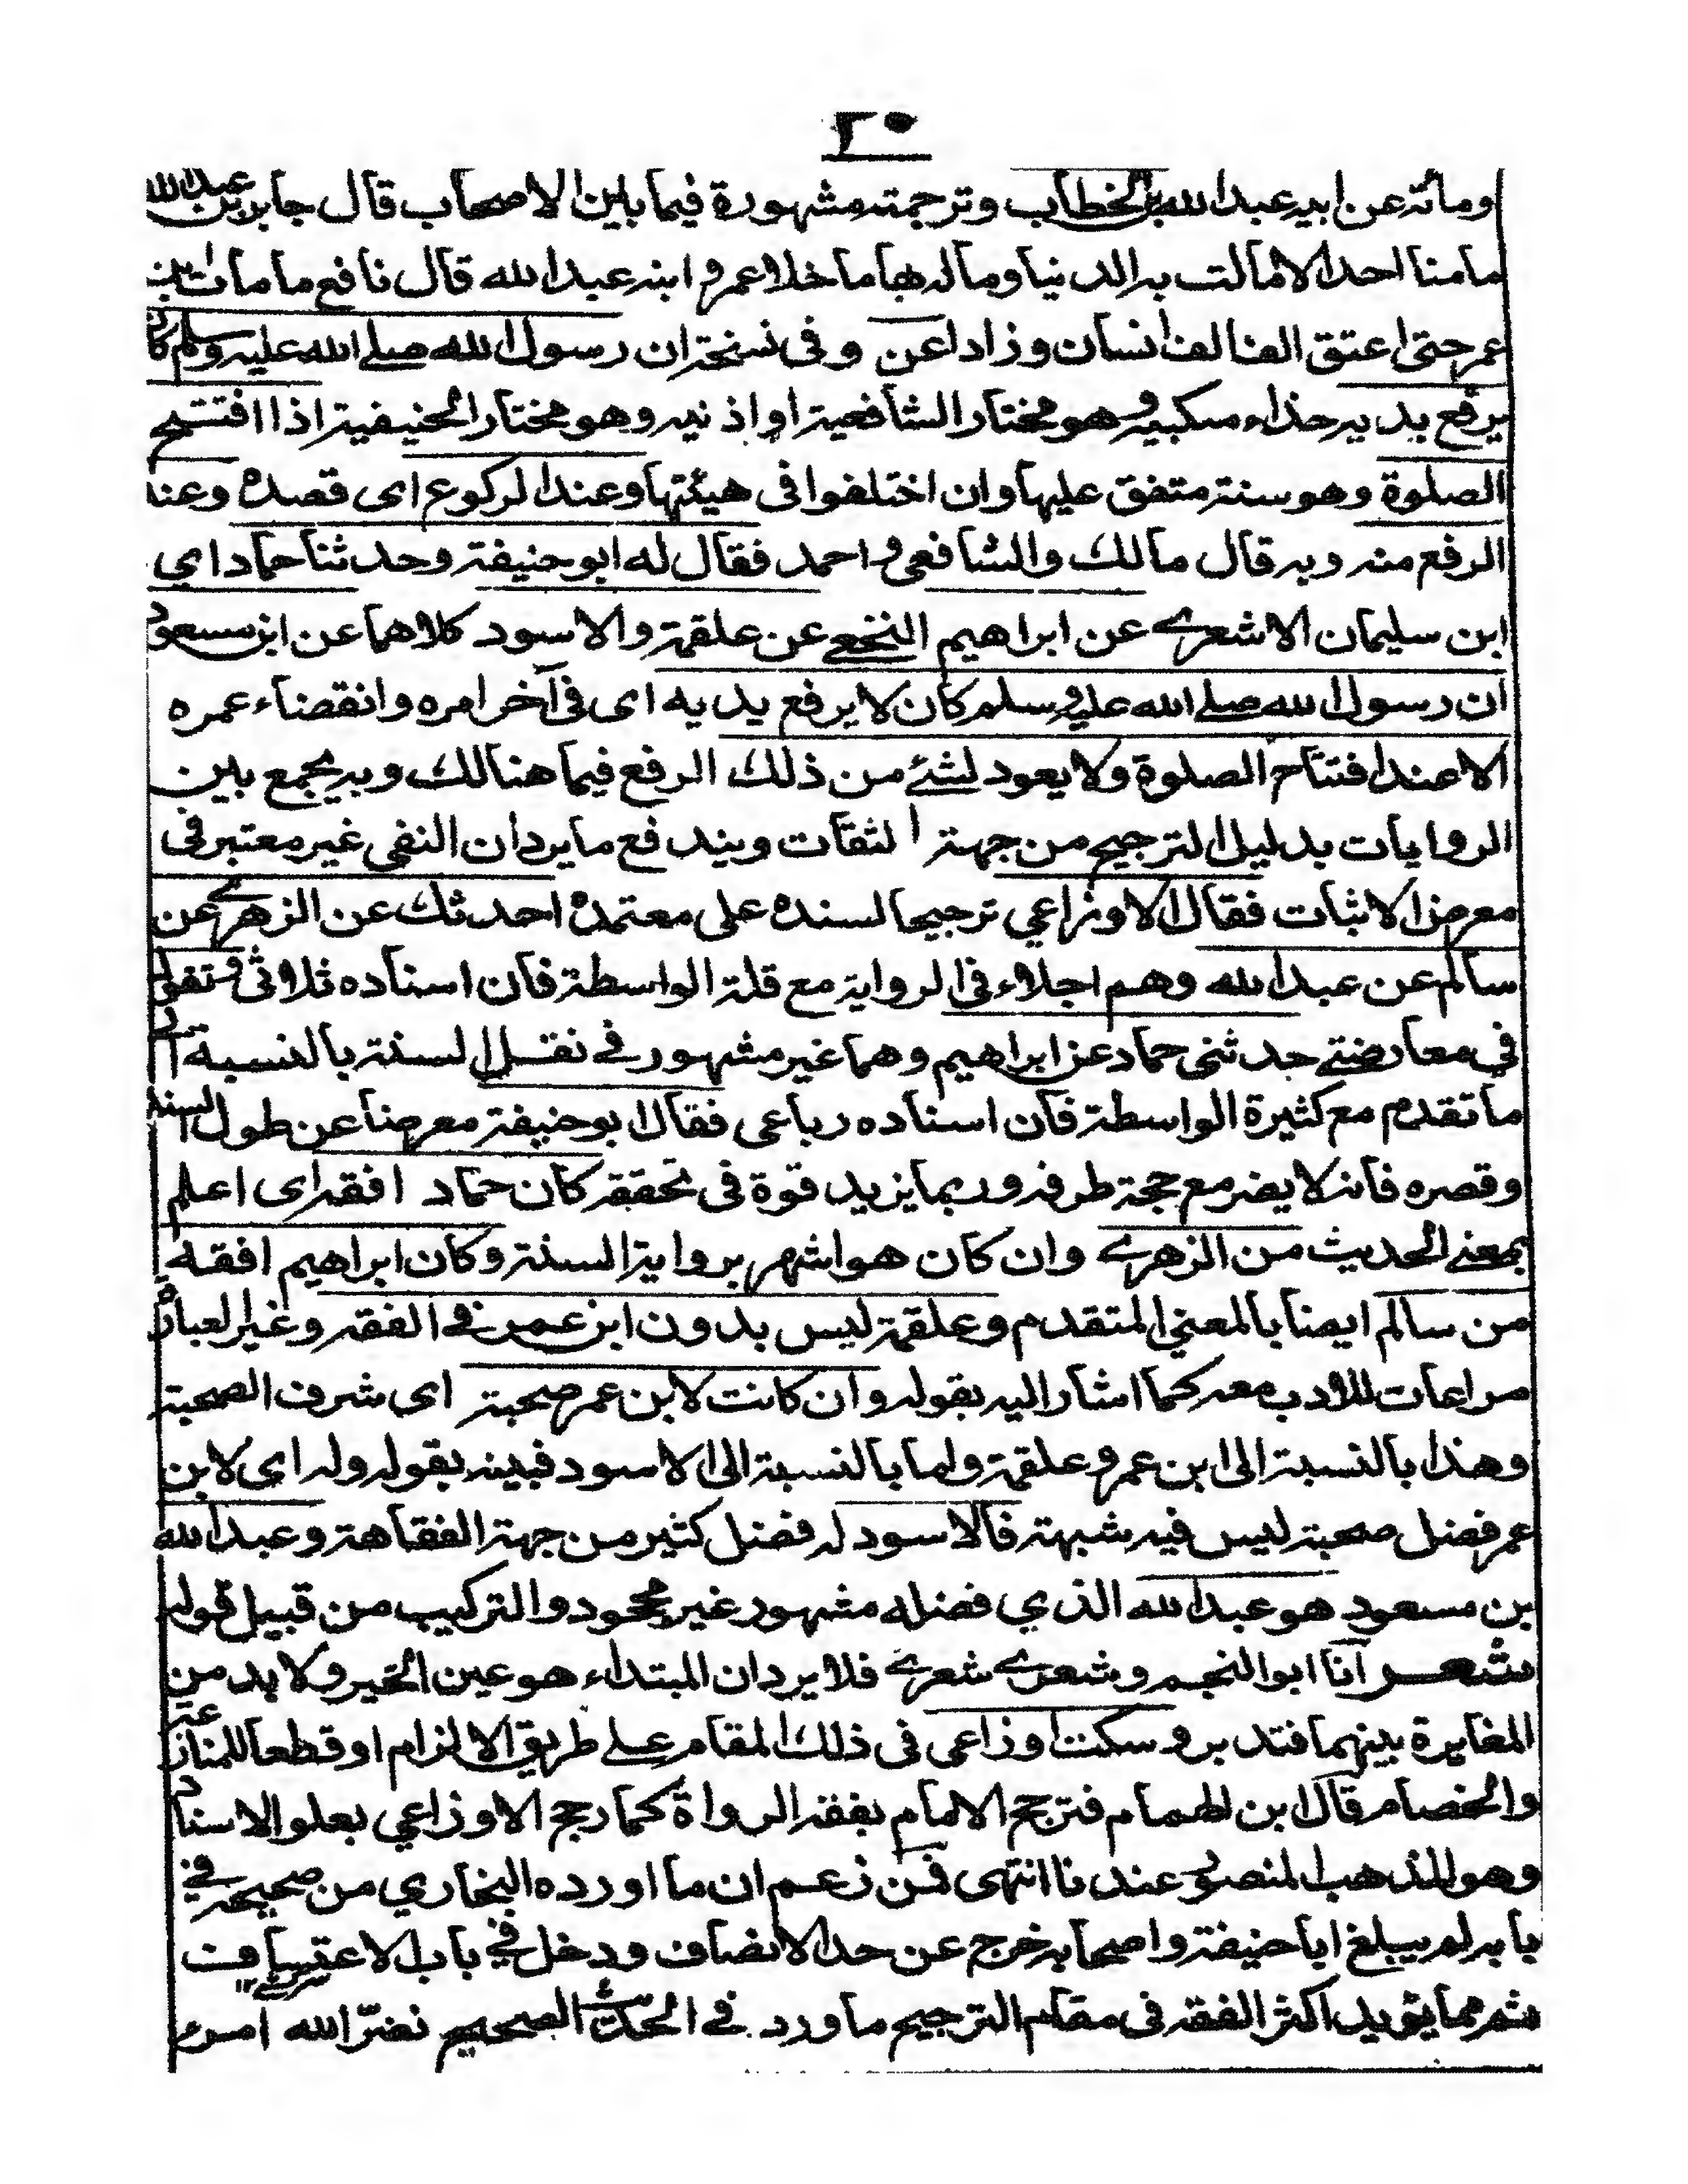 ٢٠
ومائة عن ابيه عبد الله بن الخطاب وترجمته مشهورة فيما بين الاصحاب قال جابر بن عبد الله
ما منا احد الا مالت به الدنيا ومال بها ما خلا عمر و ابنه عبد الله قال نافع ما مات ابن
عمر حتى اعتق الف الف انسان وزاد اعن وفى نسخة ان رسول الله صلے الله عليه وسلم كان
يرفع يديه حذاء منكبيه وهو مختار الشافعية او اذنيه وهو مختار الحنيفية اذا افتتح
الصلوة وهو سنة متفق عليها وان اختلفوا فى هيئتها وعند الركوع اى قصده وعند
الرفع منه وبه قال مالك والشافعى و احمد فقال له ابو حنيفة وحدثنا حماد اي
ابن سليمان الاشعرے عن ابراهيم النخعے عن علقمة والاسود كلاهما عن ابن مسعود
ان رسول الله صلے الله عليه وسلم كان لا يرفع يديه اى فى آخر امره وانقضاء عمره
الا عند افتتاح الصلوة ولا يعود لشئ من ذلك الرفع فيما هنالك وبه يجمع بين
الروايات بدليل الترجيح من جهة الثقات ويندفع ما يرد ان النفى غير معتبر فى
معرض الاثبات فقال الاوزاعي ترجيحا لسنده على معتمده احدثك عن الزهرے عن
سالم عن عبد الله وهم اجلاء فى الرواية مع قلة الواسطة فان اسناده ثلاثى وتقول
في معارضتے حدثنى حماد عن ابراهيم وهما غير مشهور فے نقل السنة بالنسبة الى
ما تقدم مع كثيرة الواسطة فان اسناده رباعى فقال ابو حنيفة معرضا عن طول السند
وقصره فانه لا يضر مع حجة طرفه وربما يزيد قوة فى تحققه كان حماد افقه اى اعلم
بمعنے الحديث من الزهرے وان كان هو اشهر برواية السنة وكان ابراهيم افقه
من سالم ايضا بالمعنى المتقدم وعلقمة ليس بدون ابن عمر فے الفقه وغير العبارة
مراعات للادب معه كما اشار اليه بقوله وان كانت لابن عمر صحبة اى شرف الصحبة
وهذا بالنسبة الى ابن عمر وعلقمة واما بالنسبة الى الاسود فبينه بقوله وله اى لابن
عمر فضل صحبة ليس فيه شبهة فالاسود له فضل كثير من جهة الفقاهة وعبد الله
بن مسعود هو عبد الله الذي فضله مشهور غير محجود والتركيب من قبيل قوله
شعر انا ابو النجم وشعرے شعرے فلا يرد ان المبتداء هو عين الخبر ولا بد من
المغايرة بينهما فتدبر وسكت اوزاعى فى ذلك المقام علے طريق الالزام او قطعا للمنازعة
والخصام قال ابن الهمام فترجح الامام بفقه الرواة كما رجح الاوزاعي بعلو الاسناد
وهو المذهب المنصور عندنا انتهى فمن زعم ان ما اورده البخاري من صحيحه في
بابه لم يبلغ ابا حنيفة واصحابه خرج عن حد الانصاف ودخل في باب الاعتساف
ثم مما يؤيد اكثر الفقه فى مقام الترجيح ما ورد فے الحديث الصحيح نضّر الله امرء